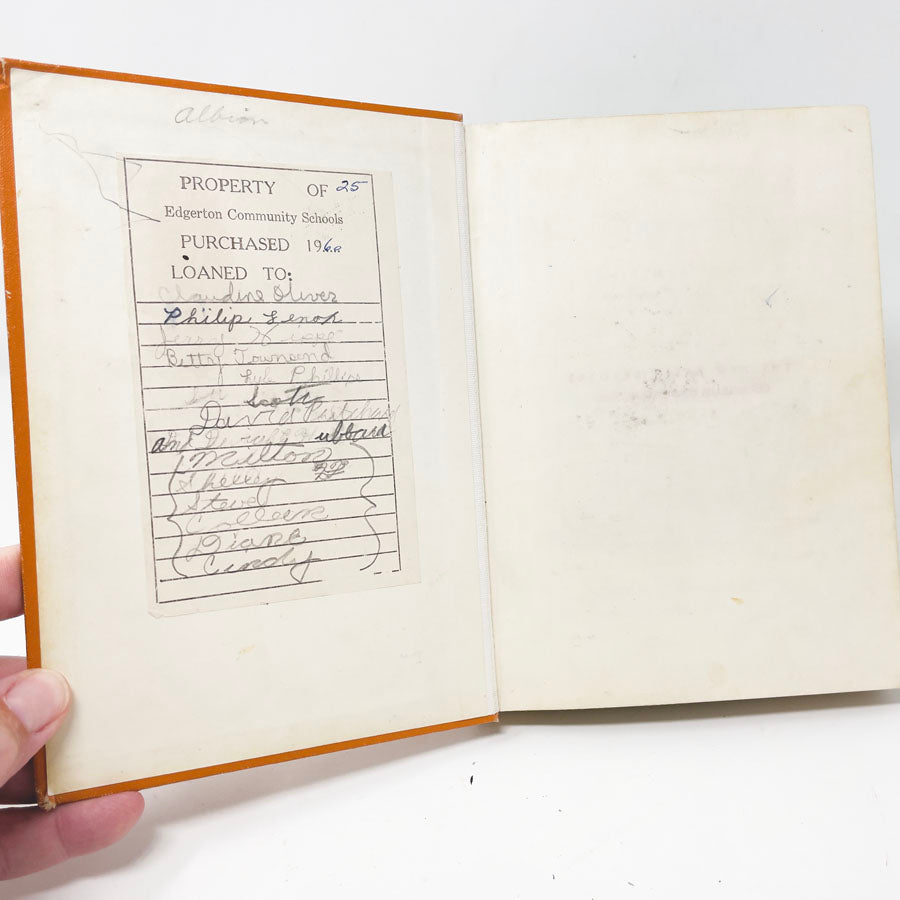 Albion
PROPERTY OF 25
Edgerton Community Schools
PURCHASED 1960
LOANED TO:
Claudine Oliver
Philip Lenox
Jerry
Betty Townsend
Lyle Phillips
Scott
David Pritchard
and Hubbard
Milton
Shelley
Steve
Colleen
Diane
Cindy